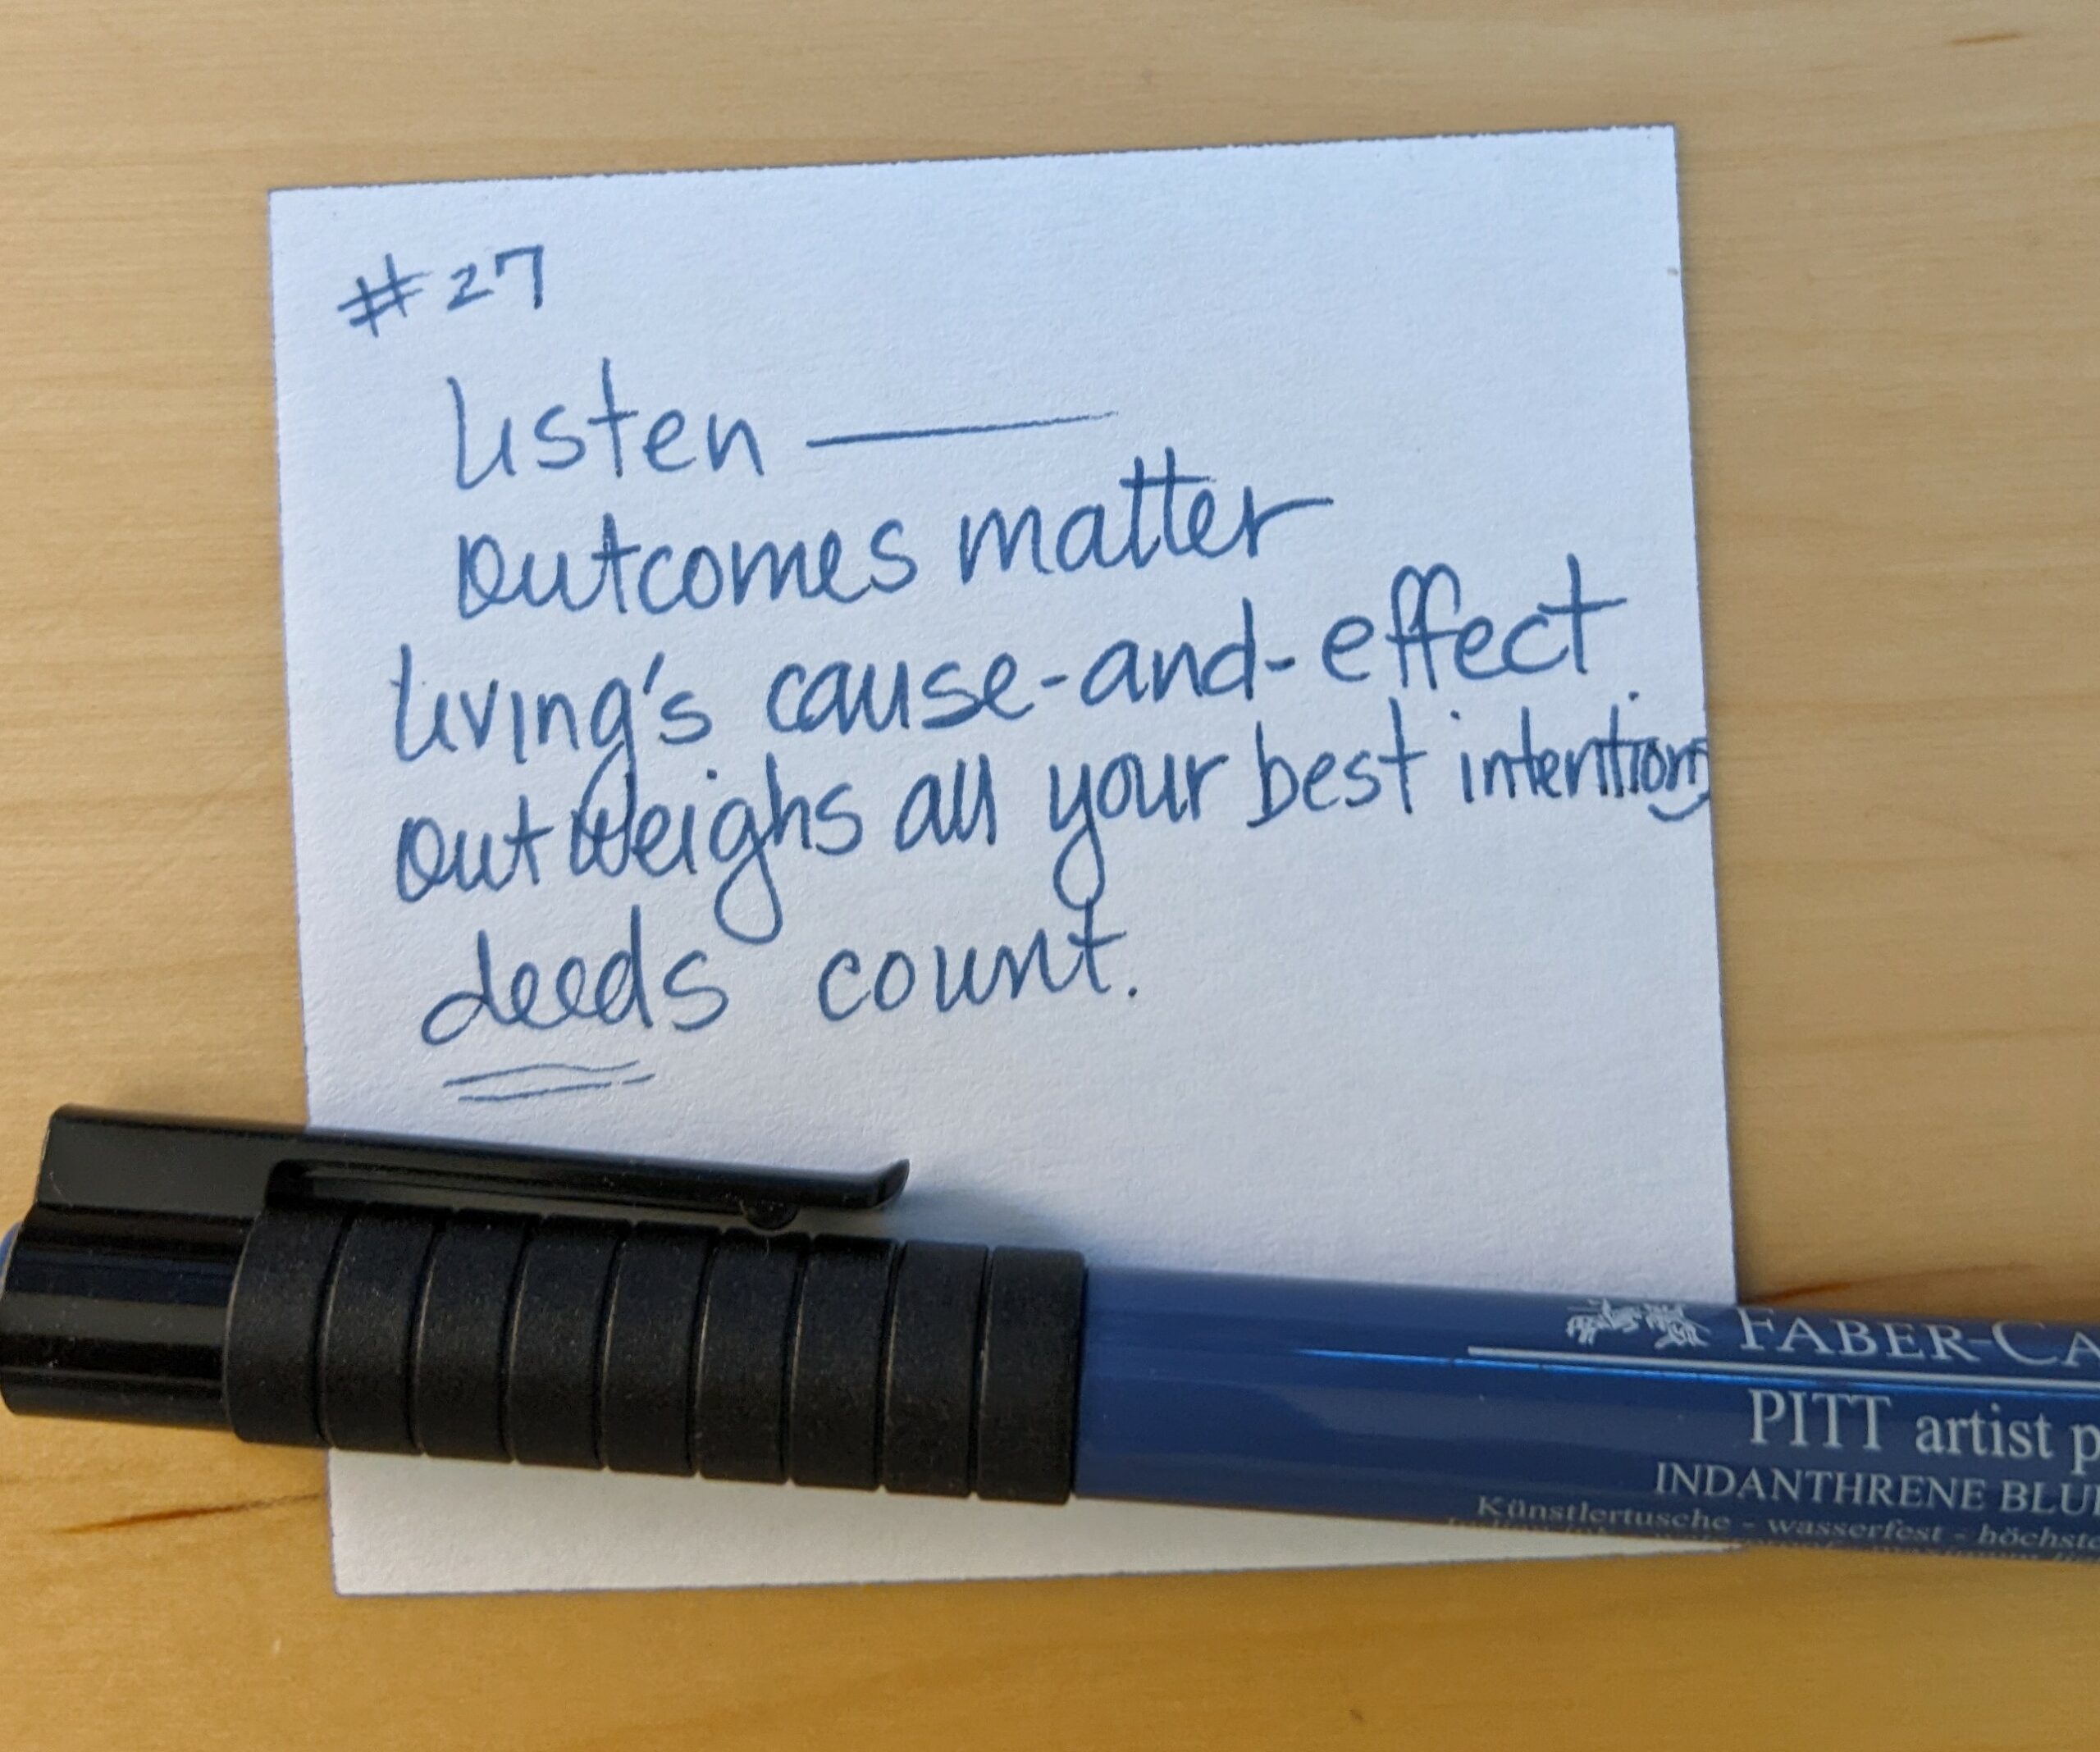 #27
Listen —
Outcomes matter
living's cause-and-effect
outweighs all your best intentions
deeds count.
FABER-CA
PITT artist p
INDANTHRENE BLU
Künstlertusche - wasserfest - höchste